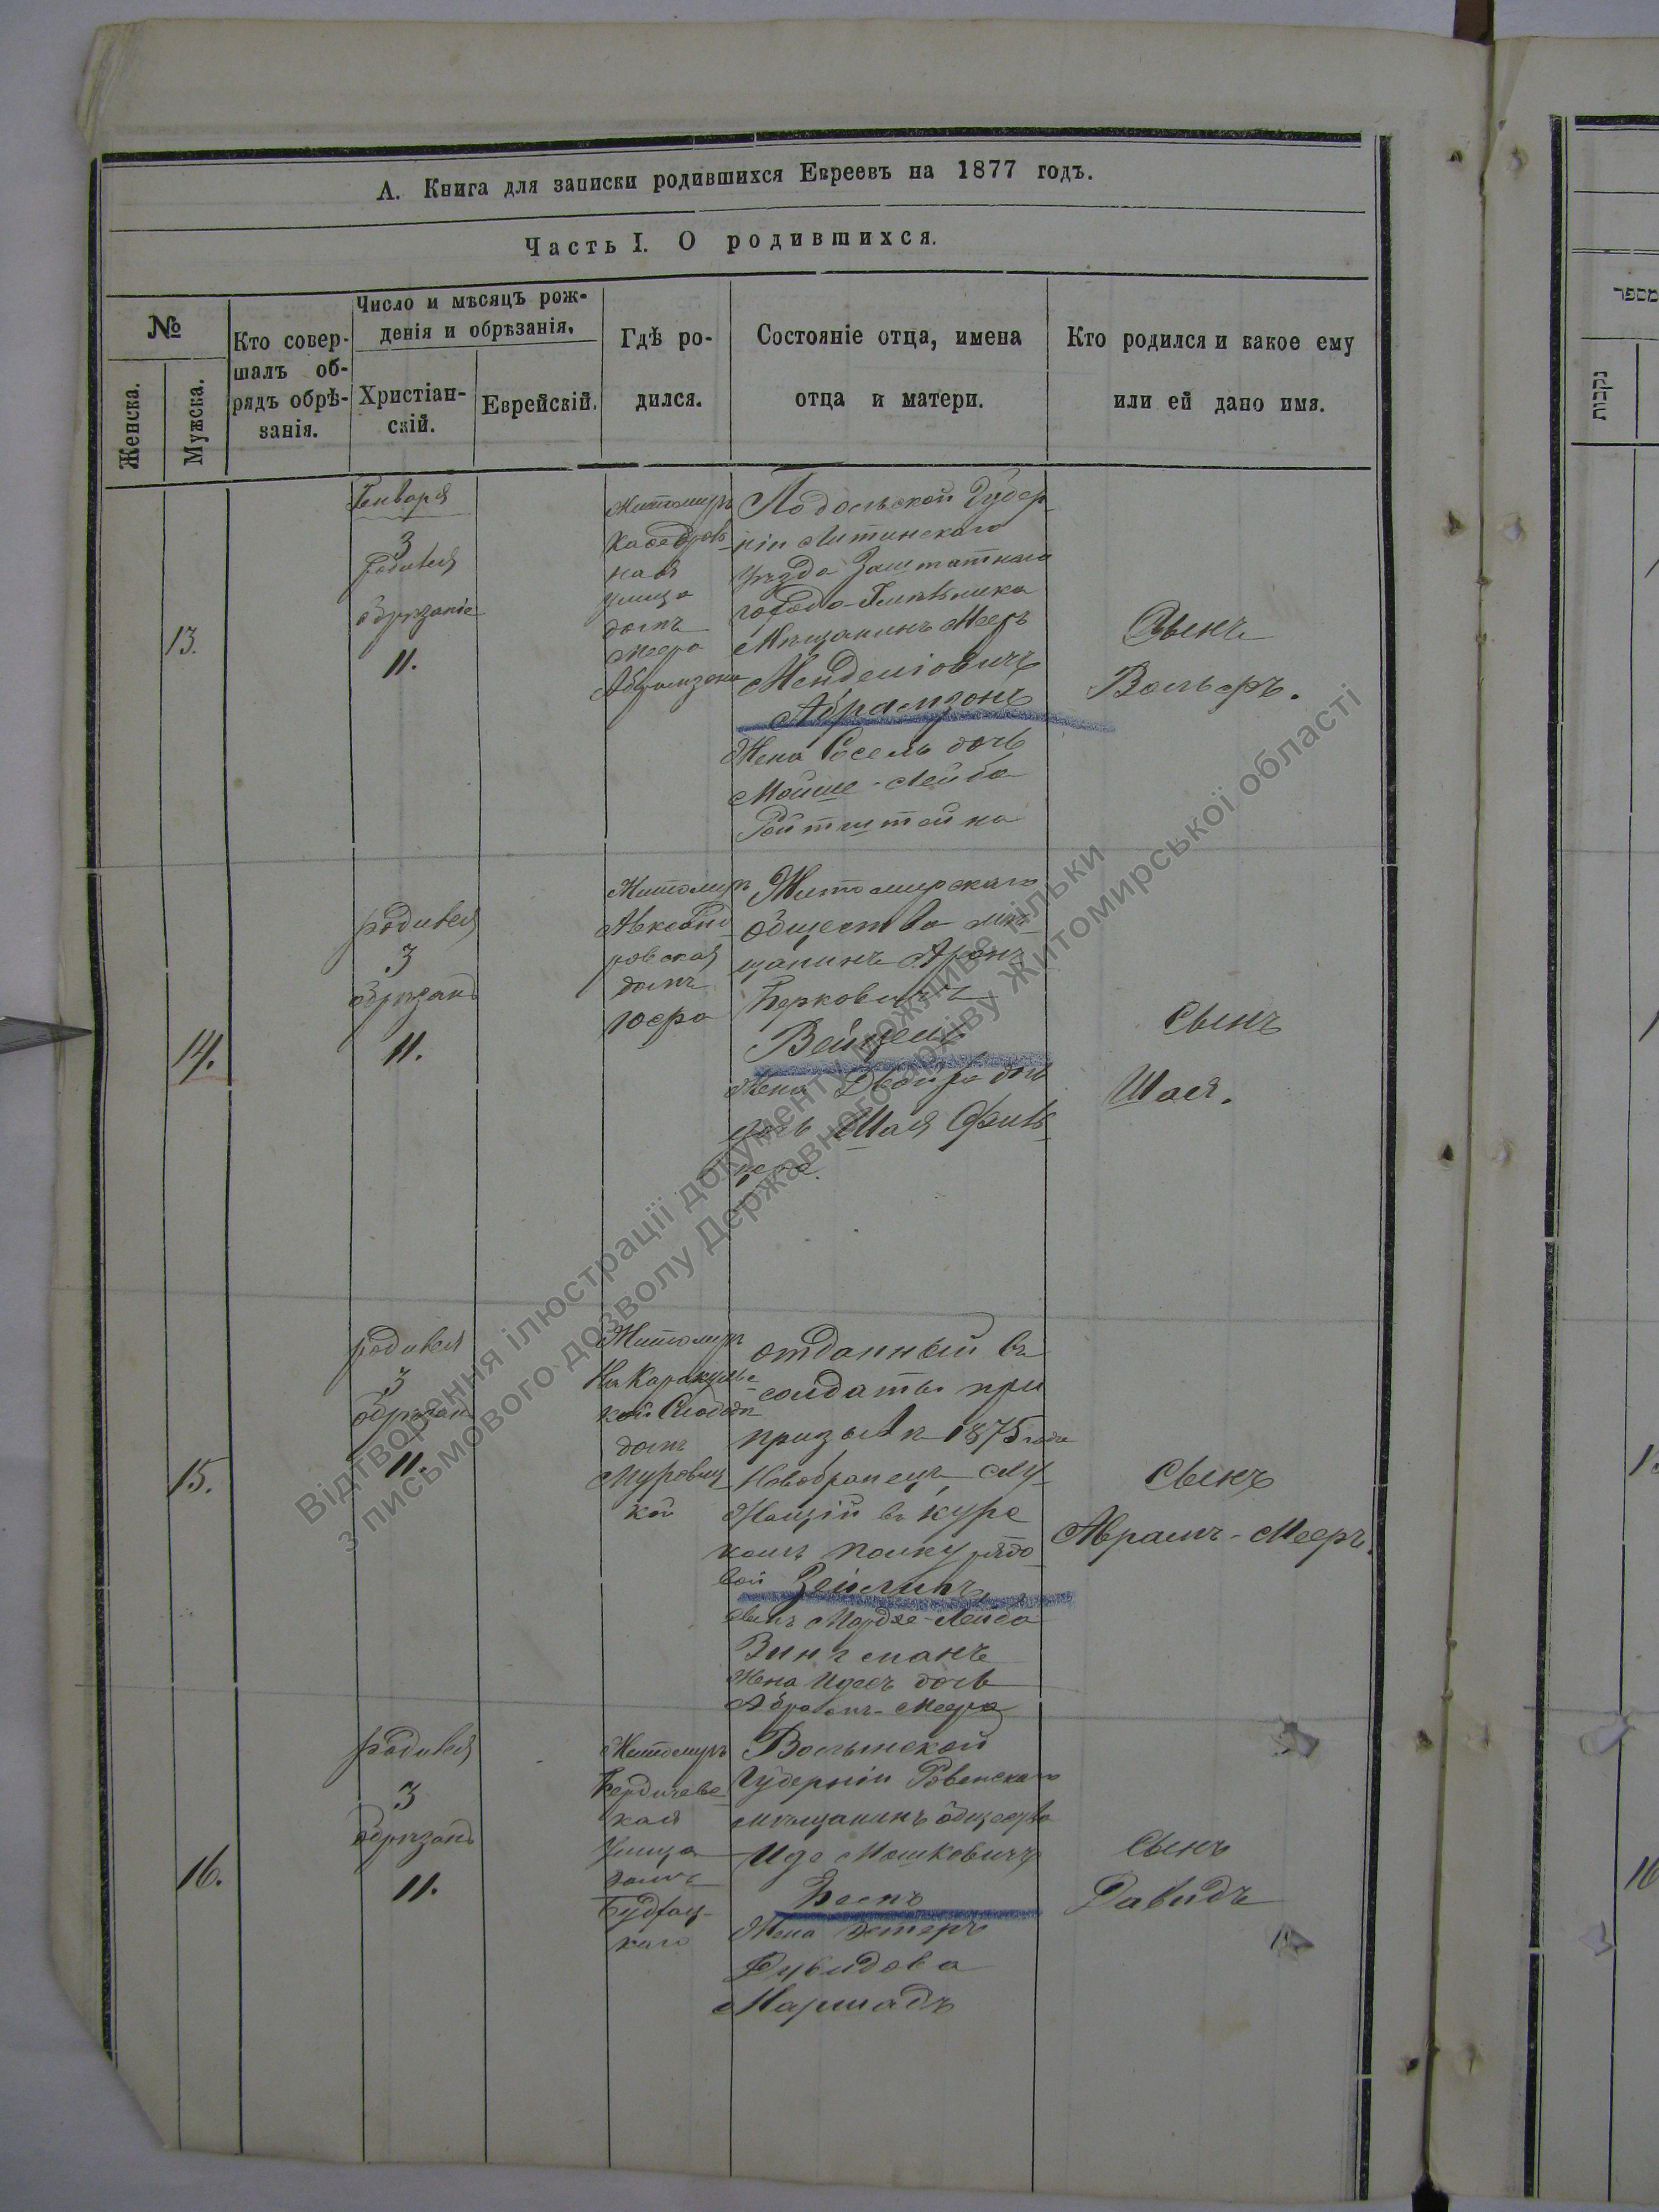 А. Книга для записки родившихся Евреевъ на 1877 годъ.
Часть I. О родившихся.
№
Женска.
Мужска.
Кто совер-
шалъ об-
рядъ обрѣ-
занія.
Число и мѣсяцъ рож-
денія и обрѣзанія.
Христіан-
скій.
Еврейскій.
Гдѣ ро-
дился.
Состояніе отца, имена
отца и матери.
Кто родился и какое ему
или ей дано имя.
13.
Генваря
3
родился
обрѣзаніе
11.
Житомиръ
Кафедраль
ная
улица
домъ
Меера
Абрамзона
Подольской Губер
ніи Литинскаго
Уѣзда Заштатнаго
города Хмѣльника
Мѣщанинъ Мееръ
Менделіовичъ
Абрамзонъ
Жена Росель дочь
Мойше-Лейба
Ройтштейна
Сынъ
Вольфъ.
14.
родился
3
обрѣзанъ
11.
Житомиръ
домъ
Житомирскаго
общества мѣ
щанинъ Аронъ
Берковичъ
Вейцель
Жена Двойра дочь
дочь Шая
Сынъ
Шая.
15.
родился
3
обрѣзанъ
11.
Житомиръ
домъ
отданный въ
солдаты при
призывѣ 1875 года
Новобранецъ слу
жащій въ Курс
комъ полку рядо
вой Зейлигъ
сынъ Мордхе-Лейба
Вингманъ
Жена дочь
Абрамъ-Меера
Сынъ
Абрамъ-Мееръ.
16.
родился
3
обрѣзанъ
11.
Житомиръ
Бердичевс
кая
Улица
домъ
Волынской
Губерніи Ровенскаго
мѣщанинъ общества
Мошковичъ
Жена Эстеръ
Дувидова
Сынъ
Давидъ
מספר
נקבות
16
Відтворення ілюстрації документу можливе тільки
з письмового дозволу Державного архіву Житомирської області